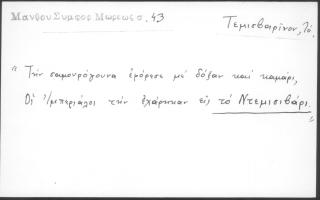 Μάνθου Συμφορ. Μωρέως σ. 43
Τεμισβαρῖνον, Τό.
"Τὴν σαμουρόγουνα ἐφόρεσε μὲ δόξαν καὶ καμάρι,
Οἱ Ἰμπεριάλοι τὴν ἐχάρηκαν εἰς τὸ Ντεμισιβάρι.